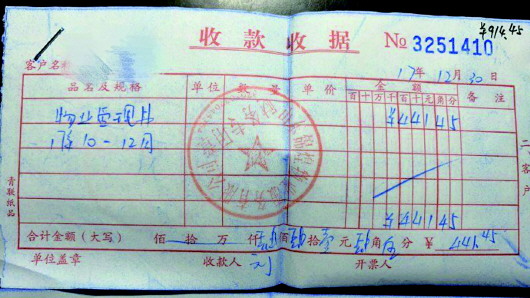 ¥914.45
收款收据 № 3251410
客户名称
17年12月30日
品名及规格 单位 数量 单价 金额 备注
百 十 万 千 百 十 元 角 分
物业管理费 ¥44145
17年10-12月
¥44145
合计金额（大写） 佰 拾 万 仟 肆 佰 肆 拾 壹 元 肆 角 伍 分 ¥ 441.45
单位盖章 收款人 开票人
青联纸品
二
客
户